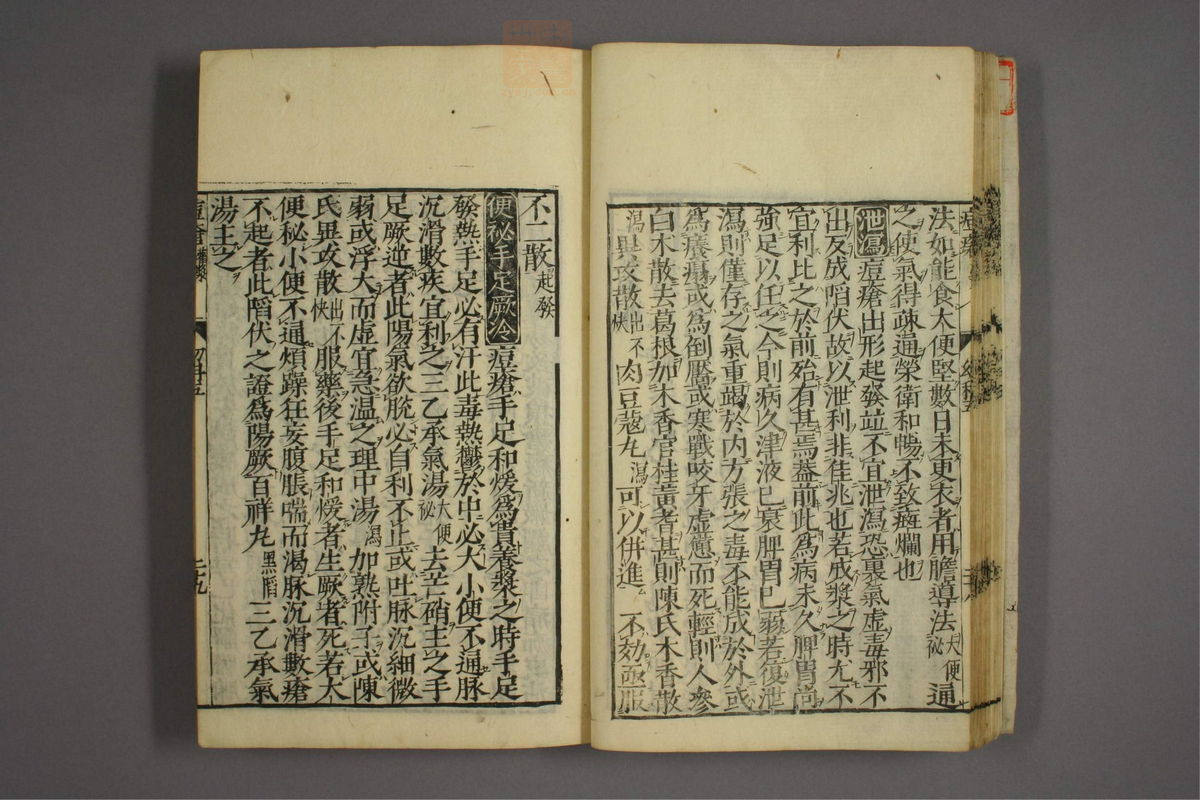 法如能食大便堅數日未更衣者用膽導法大便秘通
之使氣得疎通榮衛和暢不致斑爛也
泄瀉痘瘡出形起發竝不宜泄瀉恐裏氣虛毒邪不
出反成陷伏故以泄利非佳兆也若成漿之時尤不
宜利比之於前殆有甚焉蓋前此為病未久脾胃尚
強足以任之今則病久津液已衰脾胃已弱若復泄
瀉則僅存之氣重竭於內方張之毒不能成於外或
為癢瘍或為倒靨或寒戰咬牙虛憊而死輕則人參
白朮散去葛根加木香官桂黃耆甚則陳氏木香散
瀉異攻散出不快肉豆蔻丸瀉可以併進不効亟服
不二散起發
便秘手足厥冷痘瘡手足和煖為貴養漿之時手足
發熱手足必有汗此毒熱鬱於中必大小便不通脉
沉滑數疾宜利之三乙承氣湯大便秘去芒硝主之手
足厥逆者此陽氣欲脫必自利不止或吐脉沉細微
弱或浮大而虛宜急溫之理中湯瀉加熟附子或陳
氏異攻散出不快服藥後手足和煖者生厥者死若大
便秘小便不通煩躁狂妄腹脹喘而渴脉沉滑數瘡
不起者此陷伏之證為陽厥百祥丸黑陷三乙承氣
湯主之
二九